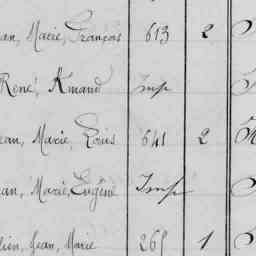 an, Marie, François 613 2
René, Armand Imp
ean, Marie, Louis 641 2
an, Marie, Eugène Imp
lien, Jean, Marie 265 1